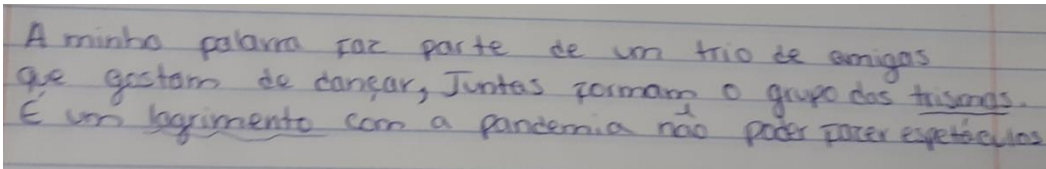 A minha palavra faz parte de um trio de amigas
que gostam de dançar, Juntas formam o grupo das trisongs.
É um lagrimento com a pandemia não poder fazer espetáculos